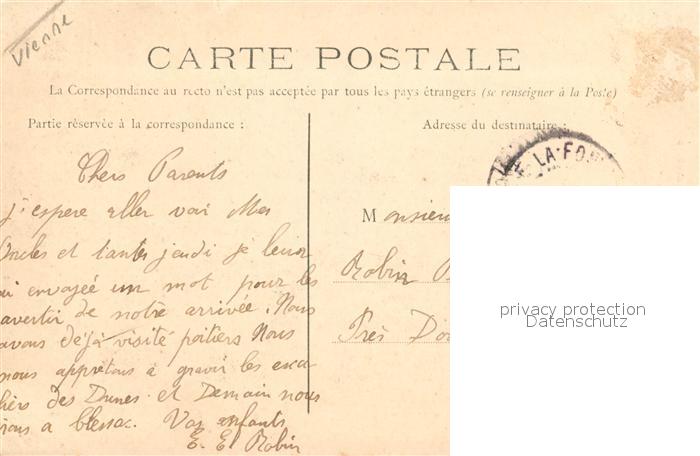 Vienne
CARTE POSTALE
La Correspondance au recto n'est pas acceptée par tous les pays étrangers (se renseigner à la Poste)
Partie réservée à la correspondance :
Adresse du destinataire :
LA-FO
Chers Parents
j'espere eller voir Mes
Oncles et tantes jeudi je leur
ai envoyée un mot pour les
avertir de notre arrivée. Nous
avons déjà visité poitiers Nous
nous apprêtons à gravir les esca
liers des Dunes et Demain nous
irons a blessac. Vos enfants
E. El Robin
Monsieur
Robin
Près Do
privacy protection
Datenschutz